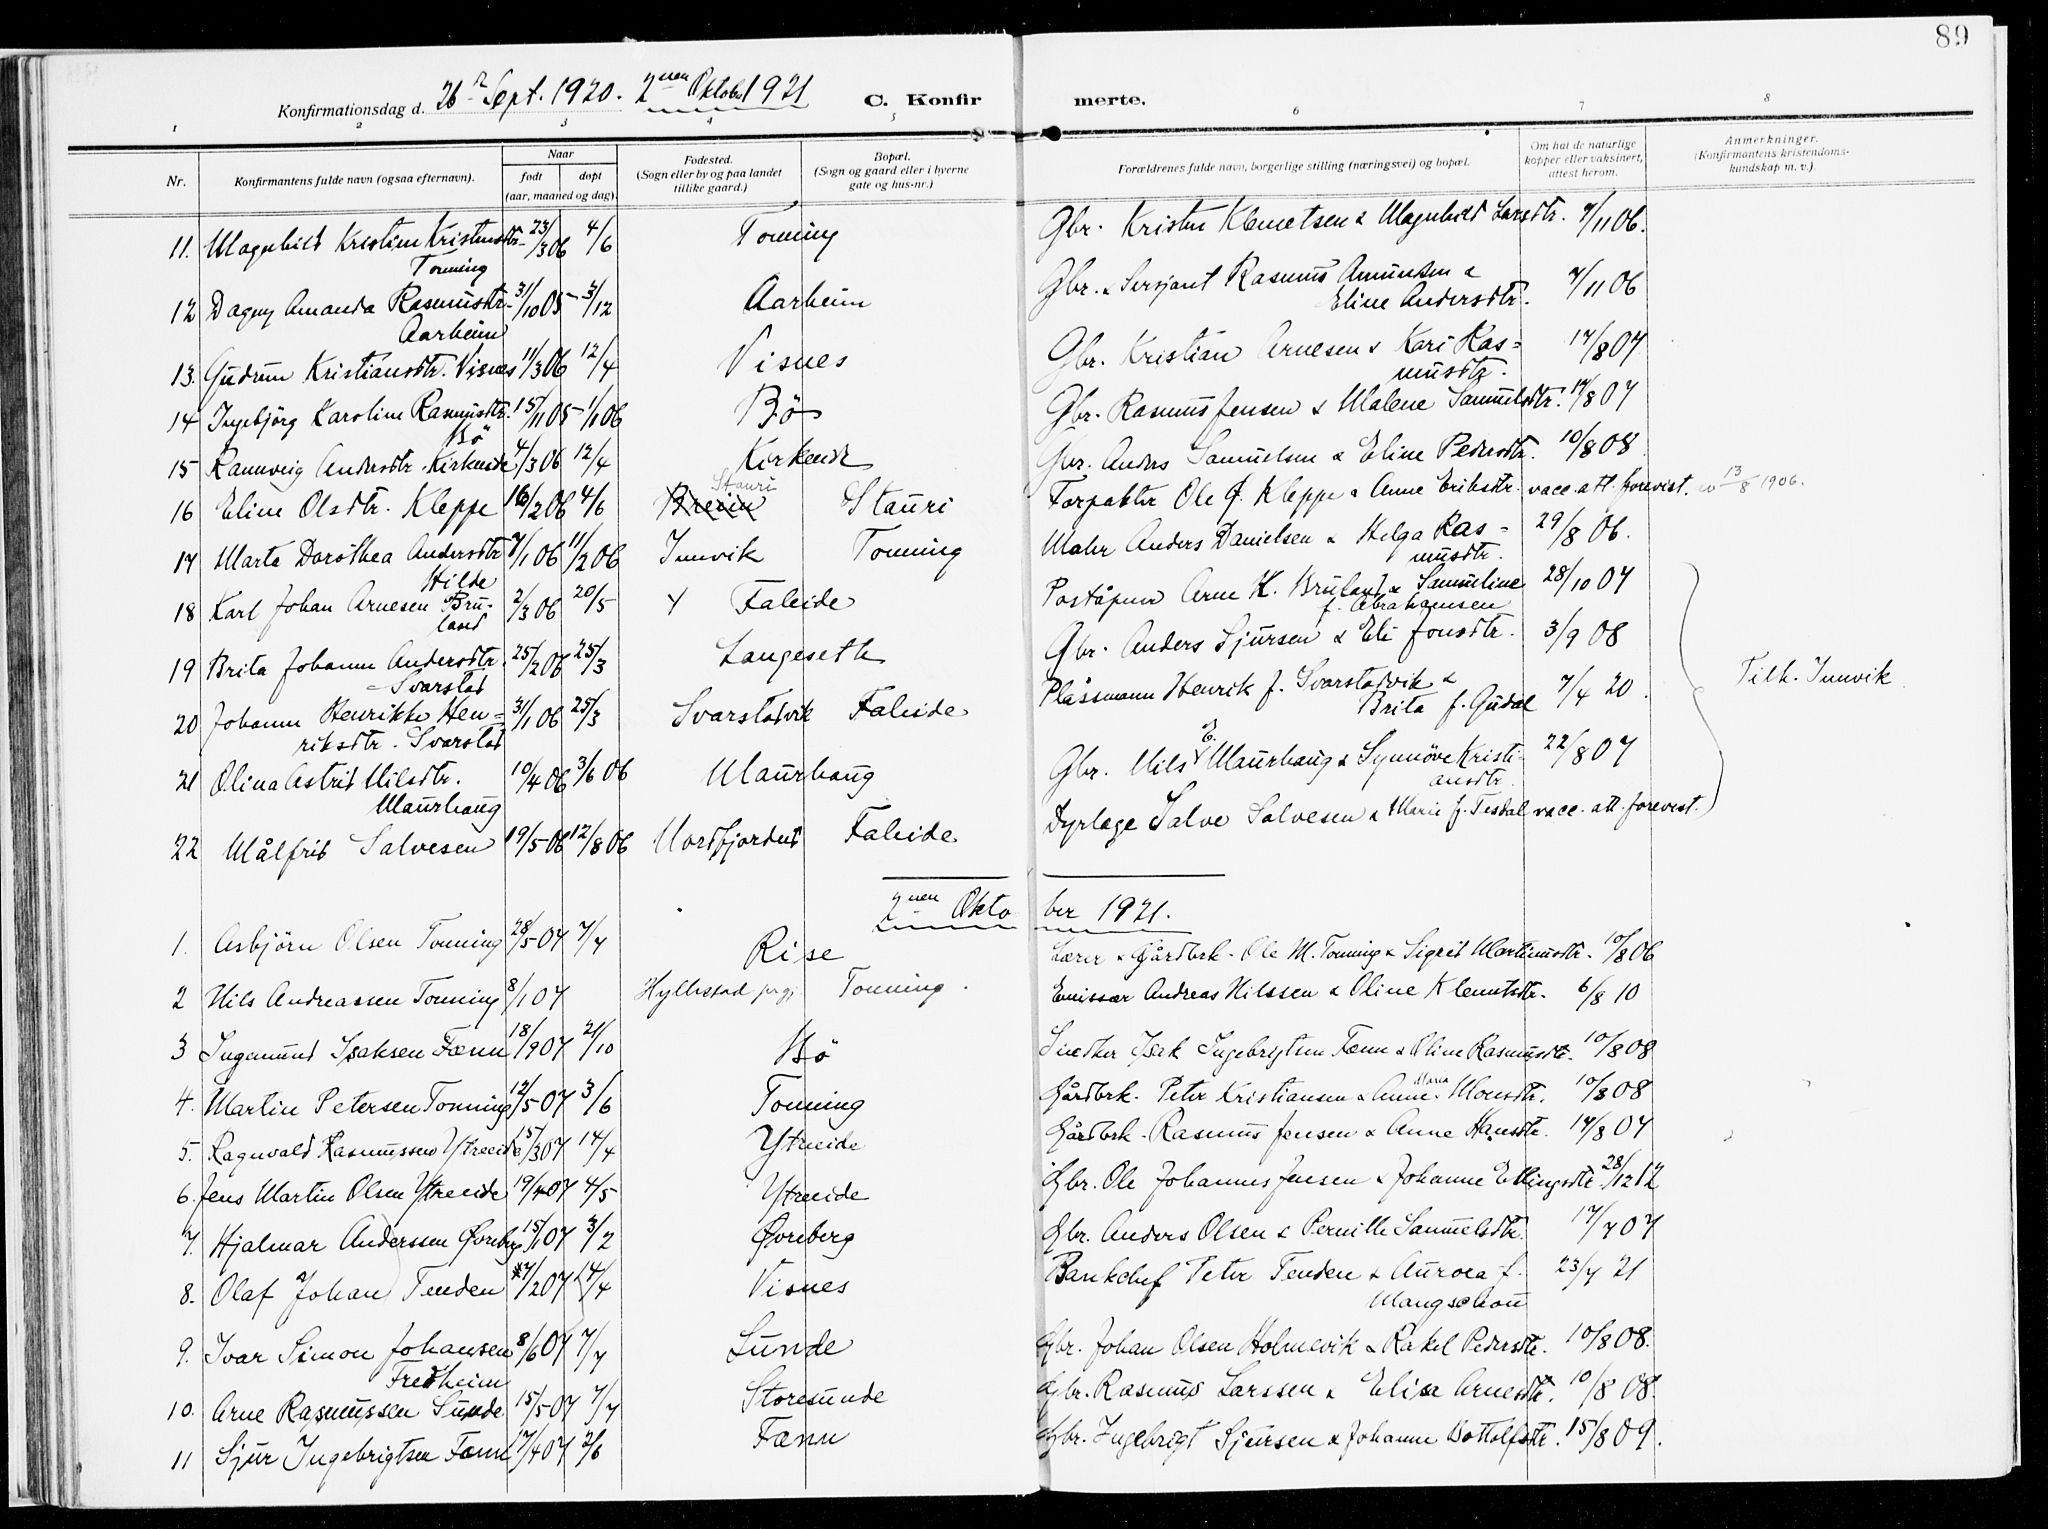 89
Konfirmationsdag d. 26de Sept. 1920. 2nen Oktober 1921 C. Konfirmerte.
1 2 3 4 5 6 7 8
Nr. Konfirmantens fulde navn (ogsaa efternavn). Naar født døpt (aar, maaned og dag) Fødested. (Sogn eller by og paa landet tillike gaard.) Bopæl. (Sogn og gaard eller i byerne gate og hus-nr.) Forældrenes fulde navn, borgerlige stilling (næringsvei) og bopæl. Om hai de naturlige kopper eller vaksinert, attest herom. Anmerkninger. (Konfirmantens kristendoms-kundskap m. v.)
11. Magnhild Kristine Kristensdtr. 23/3 06 4/6 Tonning Gbr. Kristen Klemetsen & Magnhild Larsdtr. 7/11 06.
Tonning
12 Dagny Amanda Rasmusdtr. 31/10 05 - 3/12 Aarheim Gbr. & Sersjant Rasmus Amundsen &
Aarheim Eline Andersdtr. 7/11 06
13. Gudrun Kristiansdtr. Visnes 11/3 06 12/4 Visnes Gbr. Kristian Arnesen & Kari Ras=
musdtr. 17/8 07
14 Ingebjörg Karoline Rasmusdtr. 15/11 05 - 1/1 06 Bö Gbr. Rasmus Jensen & Malene Samuelsdtr. 17/8 07
Bö
15 Rannveig Andersdtr. Kirkeide 4/3 06 12/4 Kirkeide Gbr. Anders Samuelsen & Eline Pedersdtr. 10/8 08
16 Eline Olsdtr. Kleppe 16/2 06 4/6 Stauri Stauri Forpakter Ole J. Kleppe & Anne Eriksdtr. vacc. att. forevist. 13/8 1906.
17 Marta Dorothea Andersdtr. 7/1 06 11/2 06 Innvik Tonning Maler Anders Danielsen & Helga Ras=
Hilde musdtr. 29/8 06.
18 Karl Johan Arnesen Bru- 2/3 06 20/5 Faleide Poståpner Arne K. Bruland & Samueline 28/10 07
land f. Abrahamsen
19 Brita Johanne Andersdtr. 25/2 06 25/3 Langeseth Gbr. Anders Sjursen & Eli Jonsdtr. 3/9 08
Svarstad Tilh. Innvik
20 Johanne Henrikke Hen= 31/1 06 25/3 Svarstadvik Faleide Plassmann Henrik J. Svarstadvik & 7/4 20.
riksdtr. Svarstad Brita f. Gudal
21 Olina Astrid Nilsdtr. 10/4 06 3/6 06 Maurhaug Gbr. Nils E. Maurhaug & Synnöve Kristi- 22/8 07
Maurhaug ansdtr.
22 Målfrid Salvesen 19/5 06 12/8 06 Nordfjordeid Faleide Dyrlæge Salve Salvesen & Marie f. Tesdal vacc. att. forevist.
2nen Oktober 1921.
1. Asbjörn Olsen Tonning 28/5 07 7/7 Rise Lærer & Gårdbrk. Ole M. Tonning & Sigrid Martinusdtr. 10/8 06
2 Nils Andreassen Tonning 8/1 07 Hyllestad prgj. Tonning. Emissær Andreas Nilssen & Oline Klemetsdtr. 6/8 10
3 Ingemund Isaksen Fænn 18/9 07 21/10 Bö Snedker Isak Ingebrigtsen Fænn & Oline Rasmusdtr. 10/8 08
4. Martin Petersen Tonning 12/5 07 3/6 Tonning Gårdbrk. Peter Kristiansen & Anne Maria Monsdtr. 10/8 08
5. Ragnvald Rasmussen Ytreeide 15/3 07 14/4 Ytreide Gårdbrk. Rasmus Jensen & Anne Hansdtr. 17/8 07
6. Jens Martin Olsen Ytreeide 19/4 07 4/5 Ytreeide Gbr. Ole Johannes Jensen & Johanne Ellingsdtr. 28/12 12
7. Hjalmar Anderssen Øvreberg 15/1 07 3/2 Øvreberg Gbr. Anders Olsen & Pernille Samuelsdtr. 17/7 07
8. Olaf Johan Tenden 7/2 07 14/4 Visnes Bankchef Peter Tenden & Aurora f. 23/7 21
Mangschou
9. Ivar Simon Johansen 8/6 07 7/7 Sunde Gbr. Johan Olsen Holmevik & Rakel Pedersdtr. 10/8 08.
Fredheim
10. Arne Rasmussen Sunde 15/5 07 7/7 Storesunde Gbr. Rasmus Larssen & Elisa Arnesdtr. 10/8 08.
11 Sjur Ingebrigtsen Fænn 17/4 07 2/6 Fænn Gbr. Ingebrigt Sjursen & Johanne Bottolfsdtr. 15/8 09.